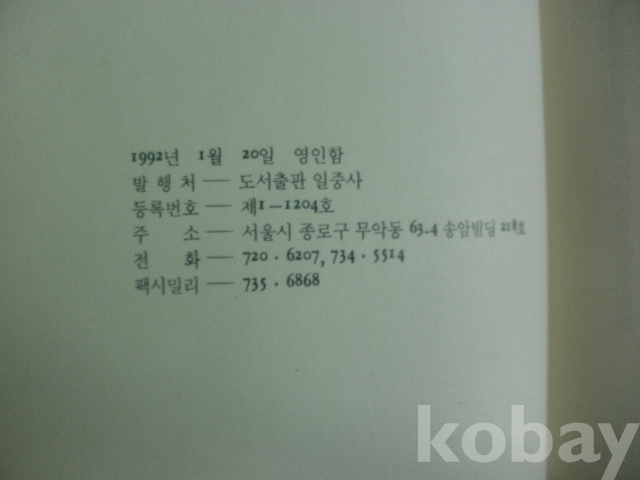 1992년 1월 20일 영인함
발 행 처 ― 도서출판 일중사
등록번호 ― 제1-1204호
주 소 ― 서울시 종로구 무악동 63-4 송암빌딩 218호
전 화 ― 720·6207, 734·5514
팩시밀리 ― 735·6868
kobay